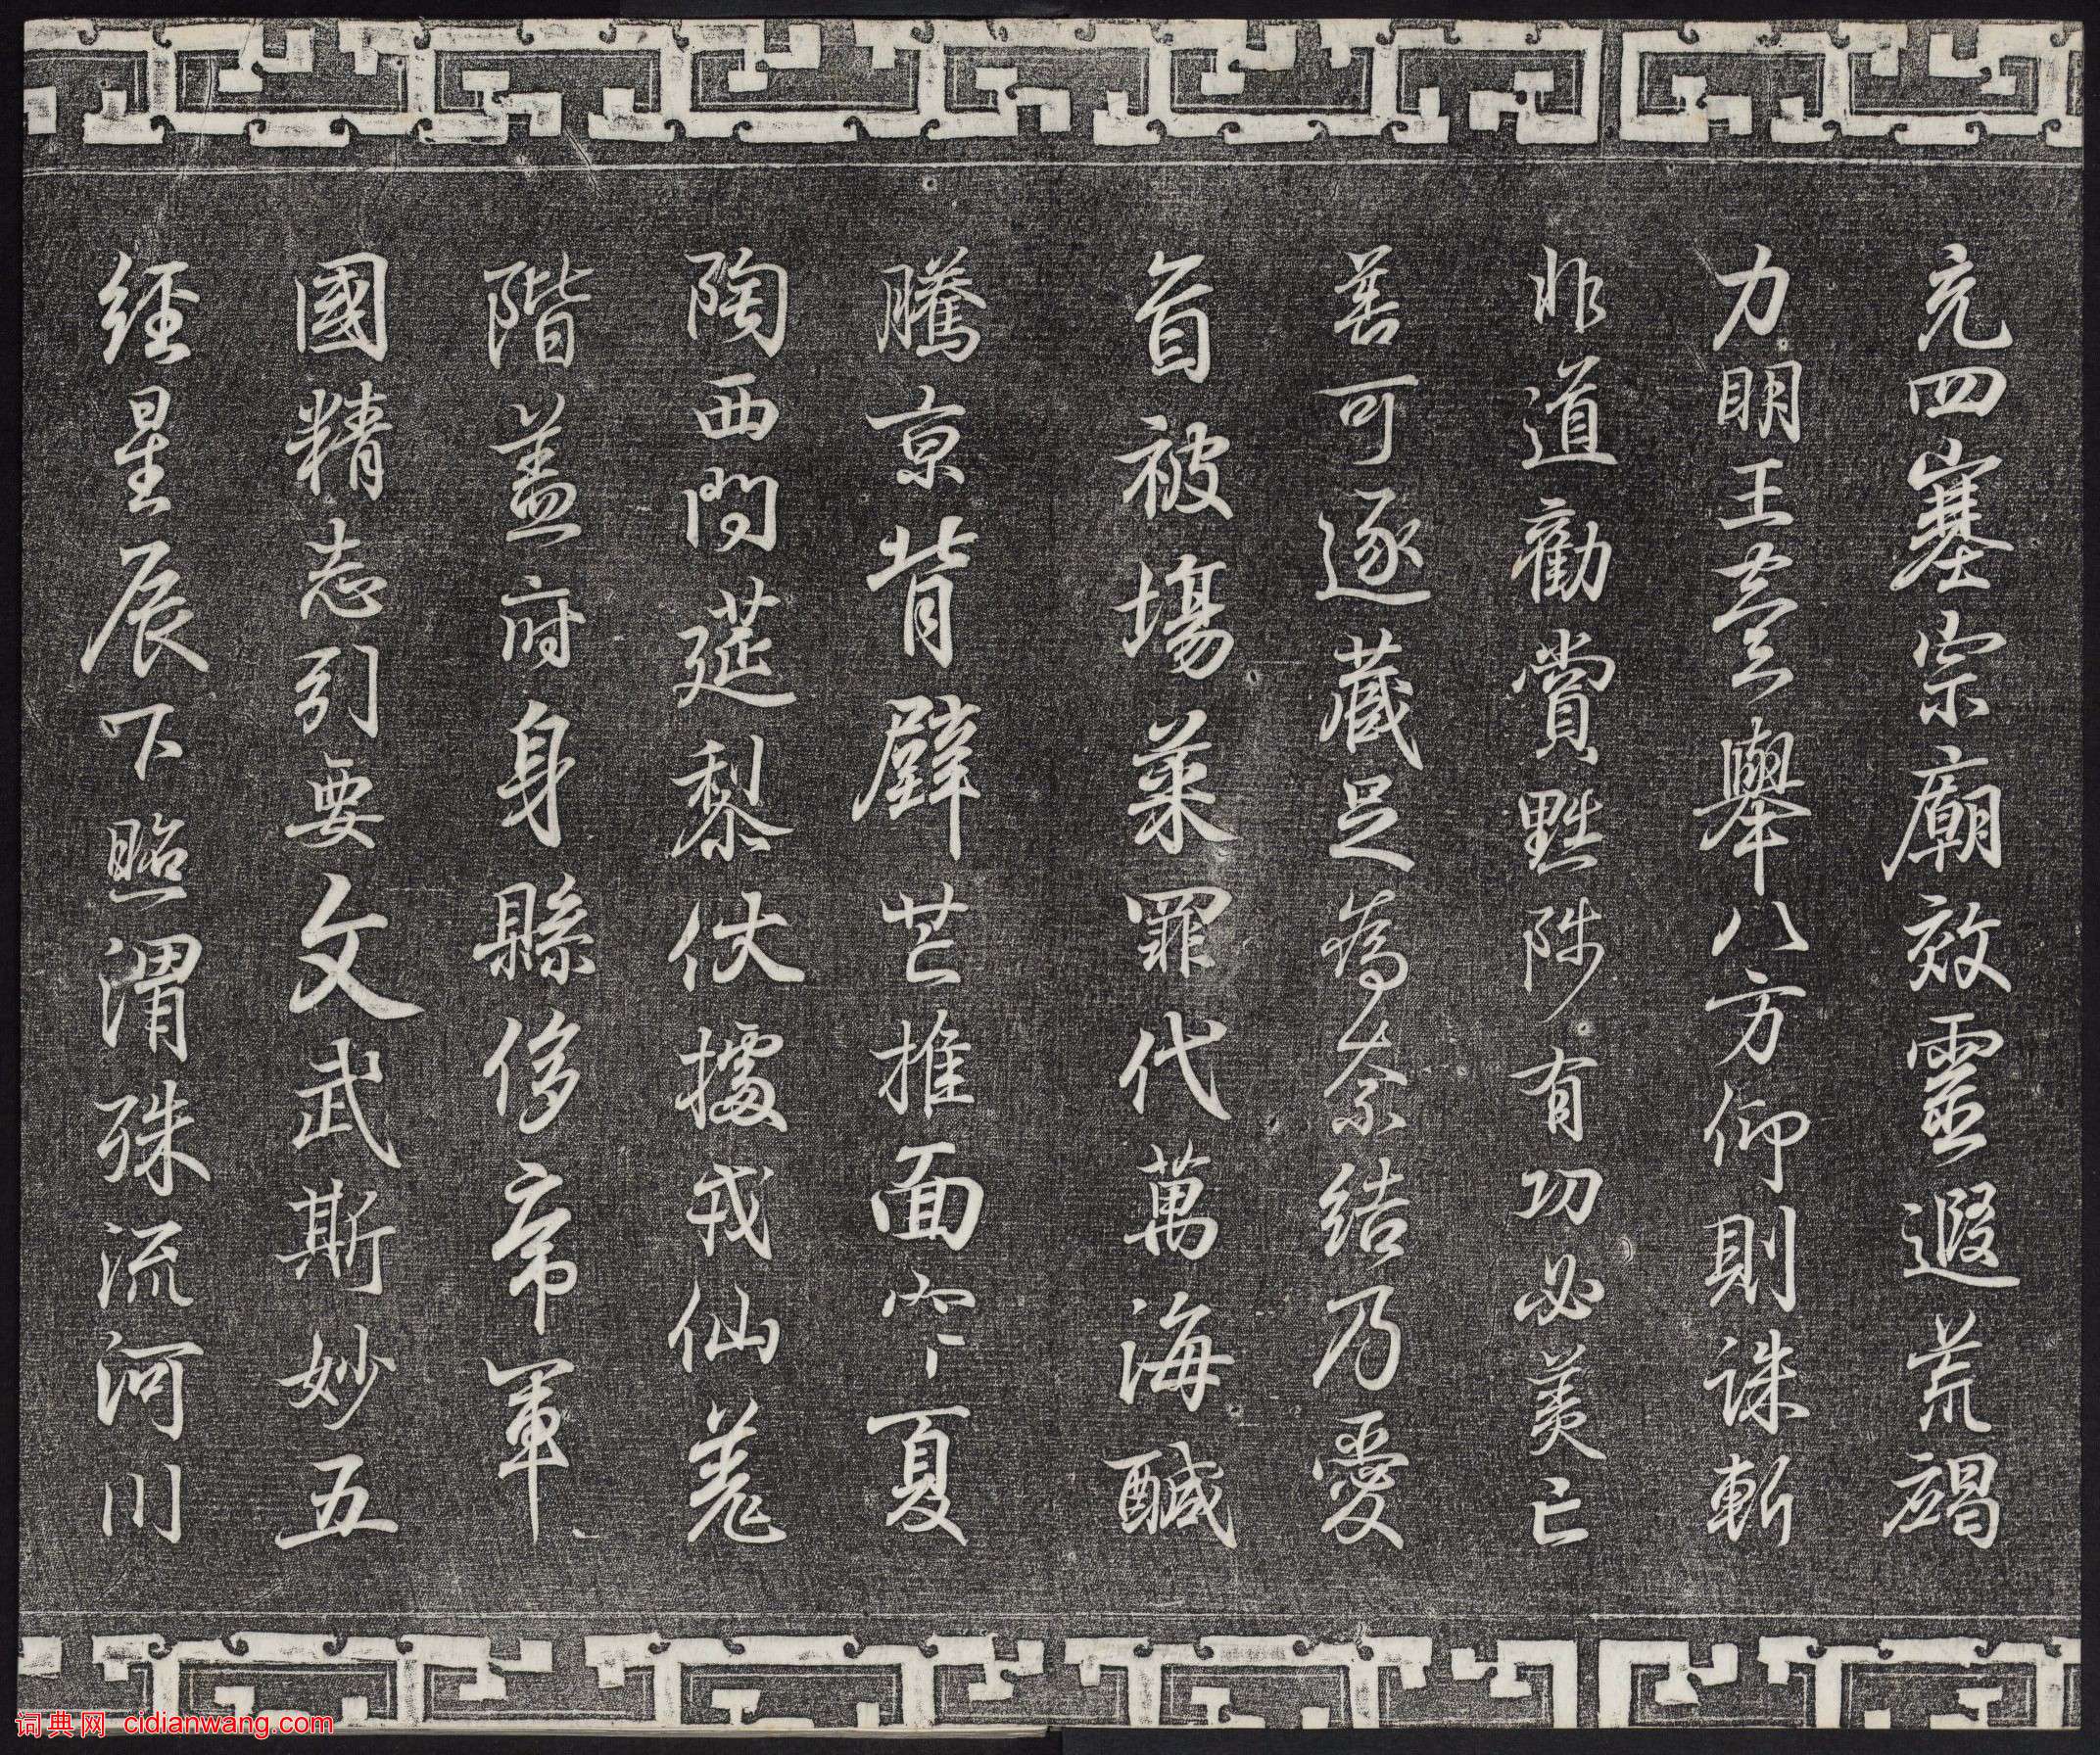 充四塞宗廟效靈遐荒碣
力明王臺舉八方仰則誅斬
非道勸賞黜陟有功必美亡
善可逐藏足為余結乃愛
首被場菜罪代萬海鹹
騰京背壁芒推面守夏
陶西門莚黎伏據戎仙羌
階蓋府身縣侈帝軍
國精志引要文武斯妙五
經星辰下照渭殊流河川
词典网 cidianwang.com